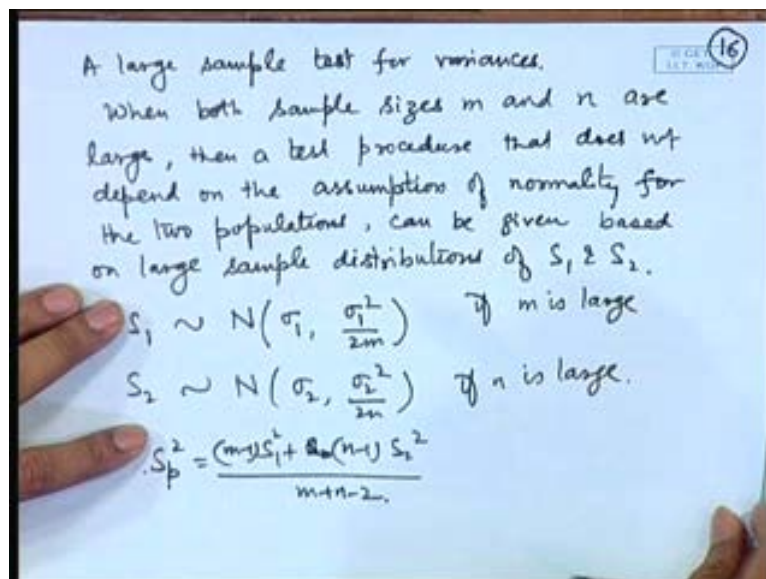 16
A large sample test for variances.
When both sample sizes m and n are
large, then a test procedure that does not
depend on the assumption of normality for
the two populations, can be given based
on large sample distributions of S₁ & S₂.
S₁ ~ N(σ₁, σ₁²/2m) if m is large
S₂ ~ N(σ₂, σ₂²/2n) if n is large.
Sp² = ((m-1)S₁² + (n-1) S₂²)/(m+n-2).